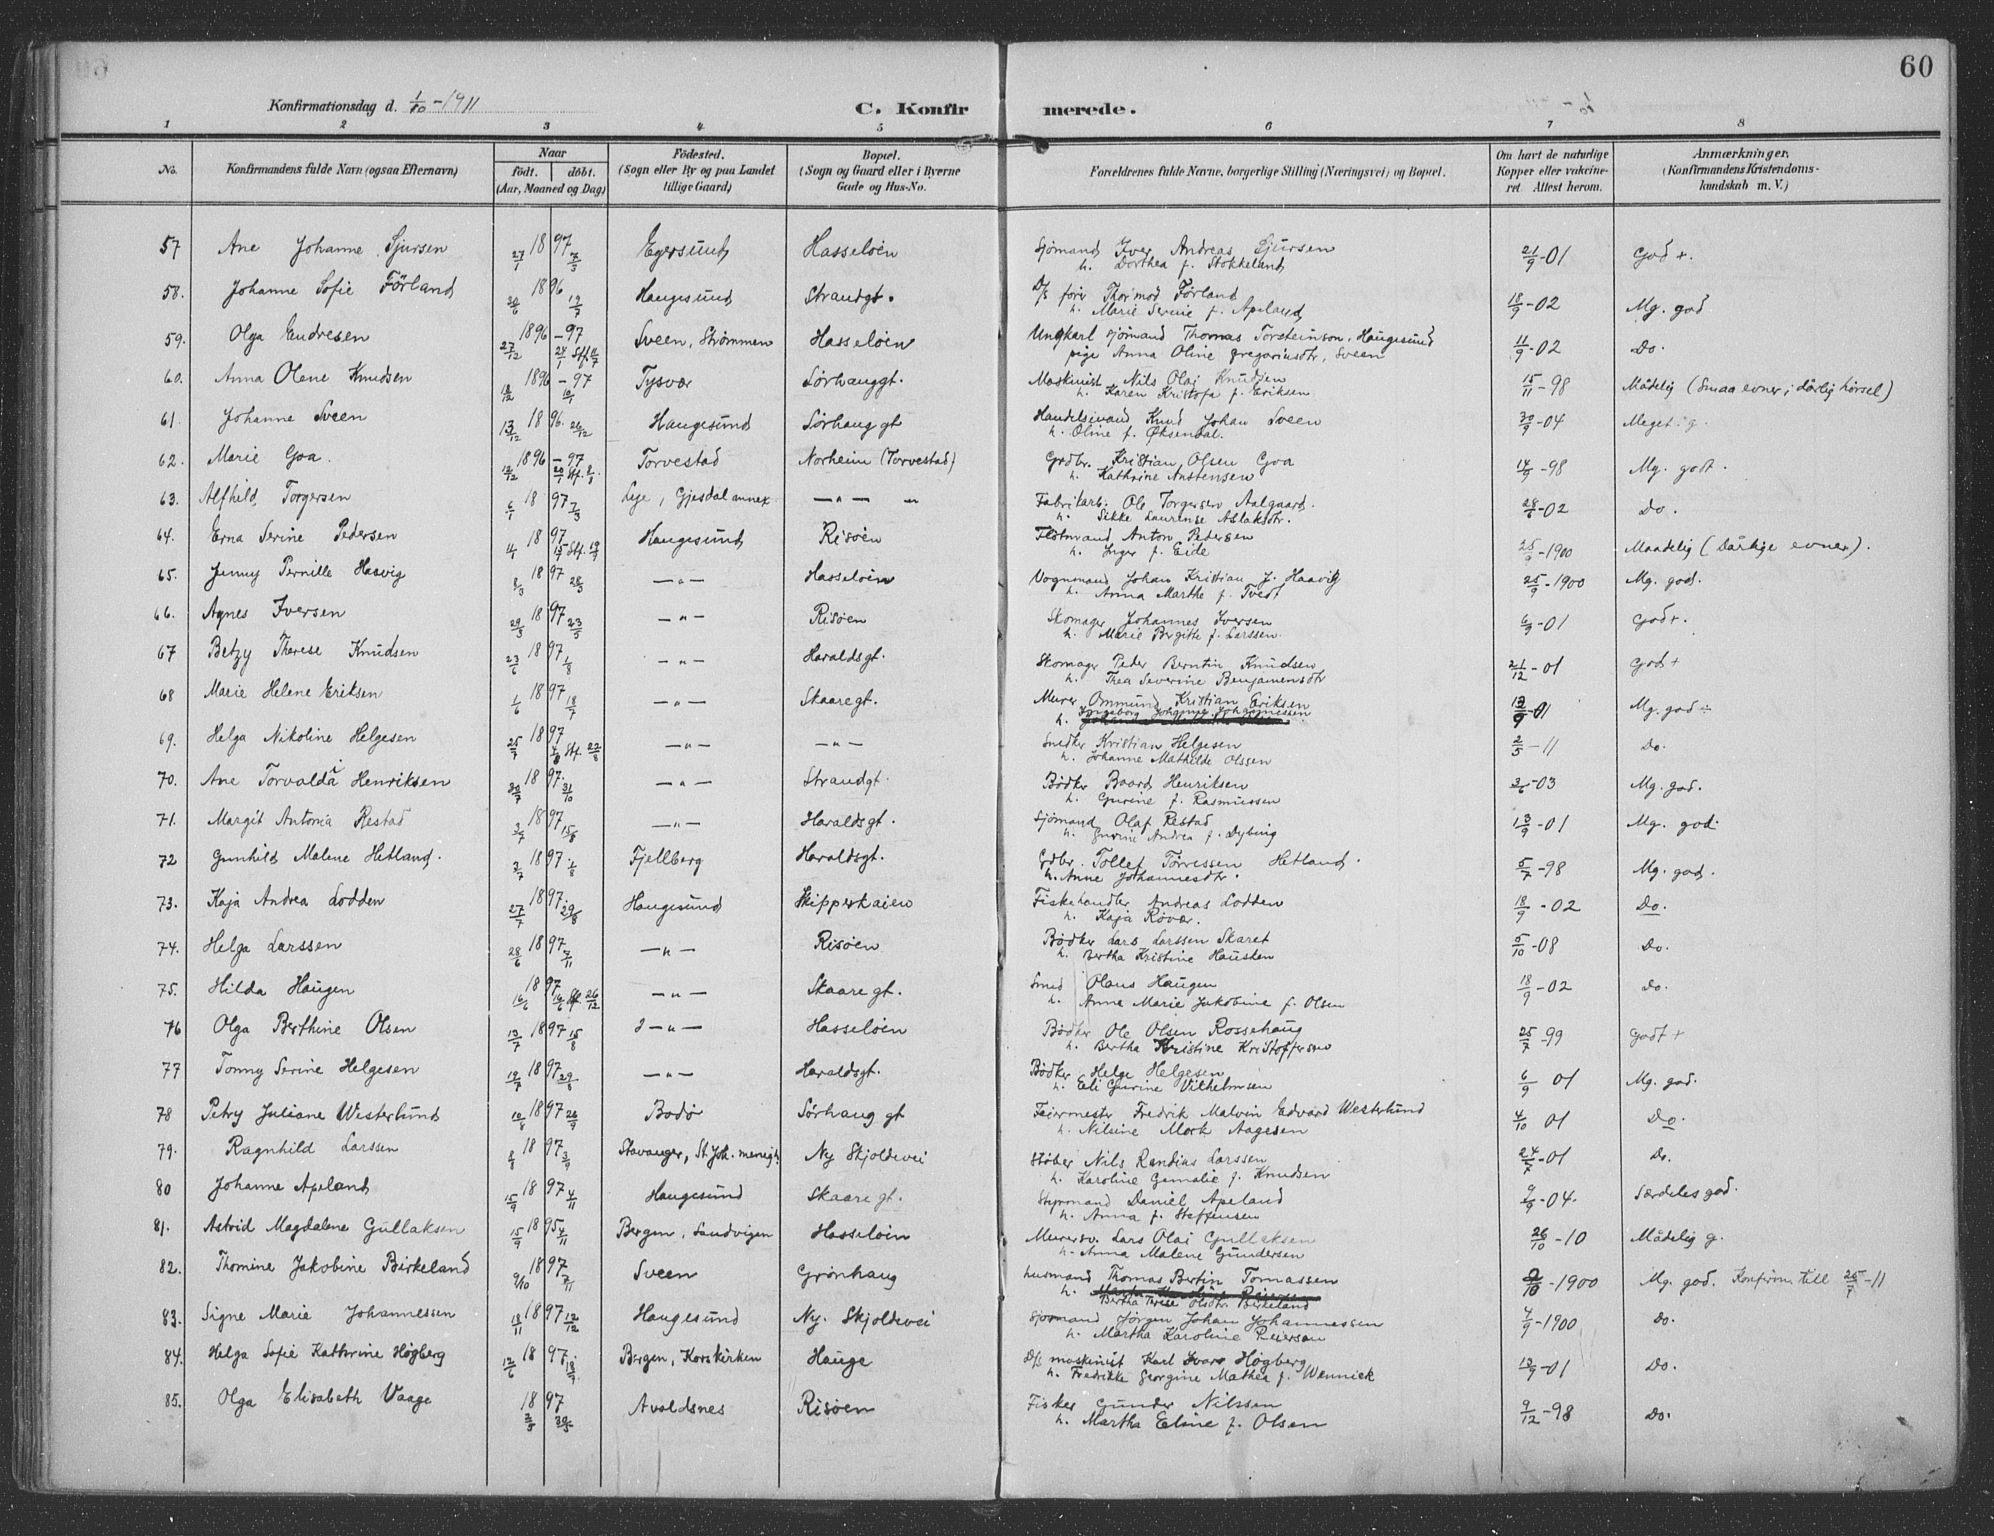 60
Konfirmationsdag d. 1/10-1911 C. Konfirmerede.
1 2 3 4 5 6 7 8
No. Konfirmandens fulde Navn (ogsaa Efternavn) Naar født. døbt. (Aar, Maaned og Dag) Fødested. (Sogn eller By og paa Landet tillige Gaard) Bopæl. (Sogn og Gaard eller i Byerne Gade og Hus-No. Forældrenes fulde Navne, borgerlige Stilling (Næringsvei) og Bopæl. Om havt de naturlige Kopper eller vakcineret. Attest herom. Anmærkninger. (Konfirmandens Kristendomskundskab m. V.)
57 Ane Johanne Sjursen 27/1 1897 7/3 Egersund Hasseløen Sjømand Iver Andreas Sjursen 21/9-01 God +.
h. Dorthea f. Stokkeland
58. Johanne Sofie Førland 20/6 1896 19/7 Haugesund Strandgt. D/s fører Thormod Førland 18/9-02 Mg. god
h. Marie Serine f. Apeland
59. Olga Endresen 27/12 1896-97 24/1 Sveen, Strømmen Hasseløen Ungkarl sjømand Thomas Torsteinson, Haugesund 11/9-02 Do.
pige Anna Oline Gregoriusdtr, Sveen
60. Anna Olene Knudsen 1896-97 Tysvær Sørhauggt. Maskinist Nils Olai Knudsen 15/11-98 Mådelig (Smaa evner; dårlig hørsel)
h. Karen Kristofa f. Eriksen
61. Johanne Sveen 13/12 1896. 26/12 Haugesund Sørhauggt Handelsmand Knud Johan Sveen 30/9-04 Meget g.
h. Oline f. Øksendal.
62. Marie Goa. 1896-97 Torvestad Norheim (Torvestad) Grdbr. Kristian Olsen Goa 14/9-98 Mg. godt.
h. Kathrine Austensen
63. Alfhild Torgersen 6/1 1897 7/3 Lye, Gjesdal annex —"— " Fabrikarb. Ole Torgersen Aalgaard -02 Do.
h. Sikke Laurense Aslaksdtr.
64. Erna Serine Pedersen 1897 Haugesund Risøen Flotmand Anton Pedersen 25/9-1900 Maadelig (Dårlige evner).
h. Inger f. Eide
65. Jenny Pernille Haavig 8/3 1897 28/3 —"— Hasseløen Vognmand Johan Kristian J. Haavig 25/9-1900 Mg. god.
h. Anna Marthe f. Tvedt
66. Agnes Iversen 29/3 1897 23/5 —"— Risøen Skomager Johannes Iversen 6/9-01 God+.
h. Marie Bergitte f. Larssen
67 Betzy Therese Knudsen 23/6 1897 1/8 —"— Haraldsgt. Skomager Peder Berntin Knudsen 21/12-01 God +
h. Thea Severine Benjamensdtr
68 Marie Helene Eriksen 1/6 1897 18/7 —"— Skaaregt. Murer Ommund Kristian Eriksen 13/9-01 Mg. god÷
h. Ingeborg Johanne Johannessen
69. Helga Nikoline Helgesen 25/7 1897 —"— —"— Snedker Kristian Helgesen 2/5-11 Do.
h. Johanne Mathilde Olssen
70. Ane Torvalda Henriksen 1897. 31/10 —"— Strandgt. Bødker Baard Henriksen -03 Mg. god.
h. Gurine f. Rasmussen
71. Margit Antonia Restad 3/7 1897 15/8 —"— Haraldsgt. Sjømand Olaf Restad 13/9-01 Mg. god
h. Andrea f. Dybing
72 Gunhild Malene Hetland. 3/7 1897. 1/8 Fjellberg Haraldsgt. Grdbr. Tollef Tørressen Hetland. 5/7-98 Mg. god.
h. Anne Johannesdtr.
73. Kaja Andrea Lodden 27/7 1897. 29/8 Haugesund Skipperkaien Fiskehandler Andreas Lodden 18/9-02 Do.
h. Kaja Røvær.
74. Helga Larssen 28/6 1897 7/11 —"— Risøen Bødker Lars Larssen Skaret 5/10-08 Do.
h. Bertha Kristine Hausken
75. Hilda Haugen 16/6 1897 16/6 Stf. 26/12 —"— Skaaregt. Smed Olaus Haugen 18/9-02 Do.
h. Anne Marie Jakobine f. Olsen
76 Olga Berthine Olsen 13/7 1897 15/8 —"— Hasseløen Bødker Ole Olsen Rossehaug 25/7-99 Godt +
h. Bertha Kristine Kristoffersen
77 Tonny Serine Helgesen 19/7 1897 29/8 —"— Haraldsgt. Bødker Helge Helgesen 6/9 01 Mg. god.
h. Eli Gurine Vilhelmsen
78 Petry Juliane Westerlund 1897 26/9 Bodø Sørhauggt Feiermester Fredrik Malvin Edvard Westerlund 4/10 01 Do.
h. Nilsine Mork Aagesen
79. Ragnhild Larssen 8/8 1897 3/9 Stavanger, St. Joh. menigh. Ny Skjoldevei Støber Nils Randius Larssen -01 Do.
h. Karoline Gemalie f. Knudsen
80 Johanne Apeland 15/9 1897 4/11 Haugesund Skaaregt. Styrmand Daniel Apeland 9/9-04. Særdeles god.
h. Anna f. Steffensen
81. Astrid Magdalene Gullaksen 15/9 1895 4/11 Bergen, Sandvigen Hasseløen Murersv. Lars Olai Gullaksen 26/10-10 Mådelig g.
h. Anna Malene Gundersen
82. Thomine Jakobine Birkeland 9/10 1897 7/11 Sveen Grønhaug Husmand Thomas Bertin Tomassen -1900 Mg. god. Konfirm. till 25/7-11
h. Bertha Terese Olsdtr. Birkeland
83. Signe Marie Johannessen 18/11 1897 12/12 Haugesund Ny. Skjoldevei Sjømand Jørgen Johan Johannessen 4/9-1900 Do.
h. Martha Karoline Reiersen
84. Helga Sofie Kathrine Høgberg 1897. Bergen, Korskirken Hauge D/s maskinist Karl Ivar Høgberg 13/9-01 Do.
h. Fredrikke Georgine Mathea f. Wennick
85. Olga Elisabeth Vaage 1897 Avaldsnes Risøen Fisker Gunder Nilssen 9/12-98 Do.
h. Martha Eline f. Olsen